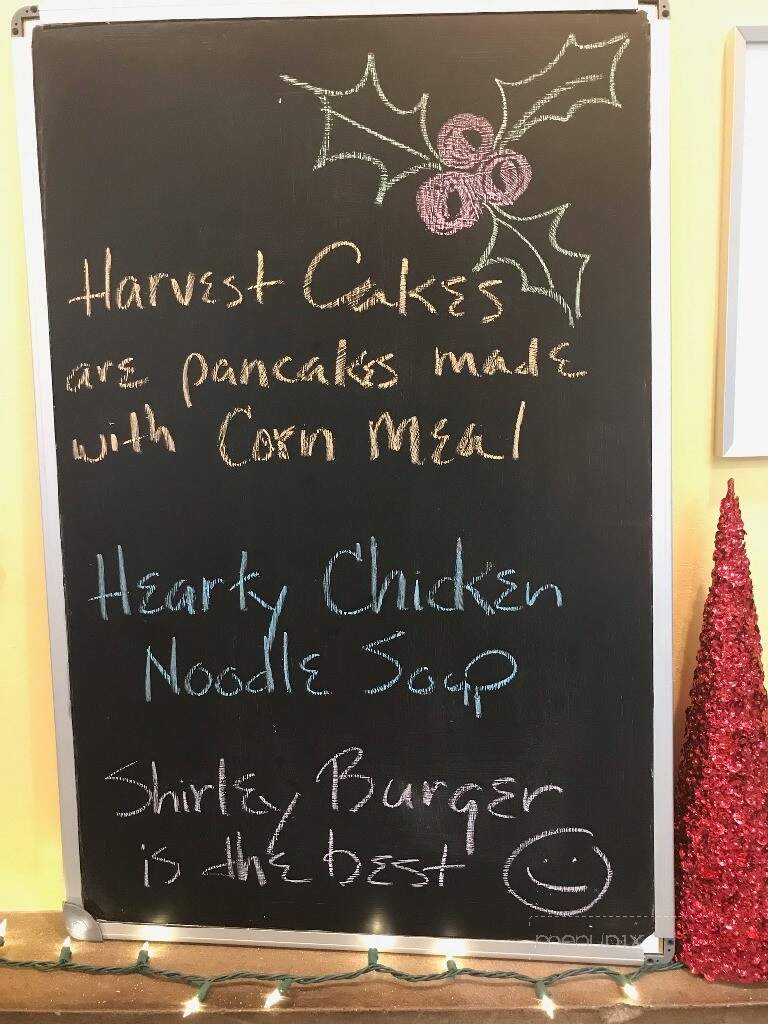 Harvest Cakes
are pancakes made
with Corn Meal
Hearty Chicken
Noodle Soup
Shirley Burger
is the best
menupix